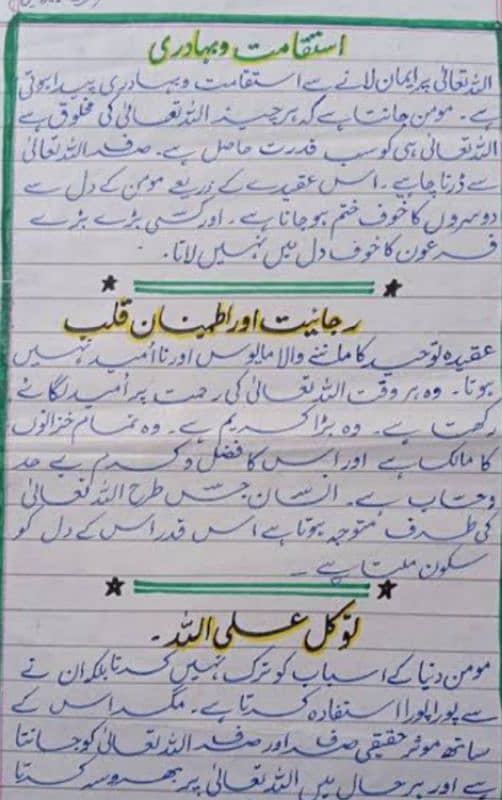 استقامت و بہادری
اللہ تعالیٰ پر ایمان لانے سے استقامت و بہادری پیدا ہوتی
ہے۔ مومن جانتا ہے کہ ہر چیز اللہ تعالیٰ کی مخلوق ہے
اللہ تعالیٰ ہی کو سب قدرت حاصل ہے۔ صرف اللہ تعالیٰ
سے ڈرنا چاہیے۔ اس عقیدے کے ذریعے مومن کے دل سے
دوسروں کا خوف ختم ہو جاتا ہے۔ اور کسی بڑے بڑے
فرعون کا خوف دل میں نہیں لاتا۔
رجائیت اور اطمینان قلب
عقیدہ توحید کا ماننے والا مایوس اور نا اُمید نہیں
ہوتا۔ وہ ہر وقت اللہ تعالیٰ کی رحمت پر اُمید لگائے
رکھتا ہے۔ وہ بڑا کریم ہے۔ وہ تمام خزانوں
کا مالک ہے اور اس کا فضل و کرم بے حد
و حساب ہے۔ انسان جس طرح اللہ تعالیٰ
کی طرف متوجہ ہوتا ہے اس قدر اس کے دل کو
سکون ملتا ہے۔
توکل علی اللہ۔
مومن دنیا کے اسباب کو ترک نہیں کرتا بلکہ ان نے
سے پورا پورا استفادہ کرتا ہے۔ مگر اس کے
ساتھ موثر حقیقی صرف اور صرف اللہ تعالیٰ کو جانتا
ہے اور ہر حال میں اللہ تعالیٰ پر بھروسہ کرتا